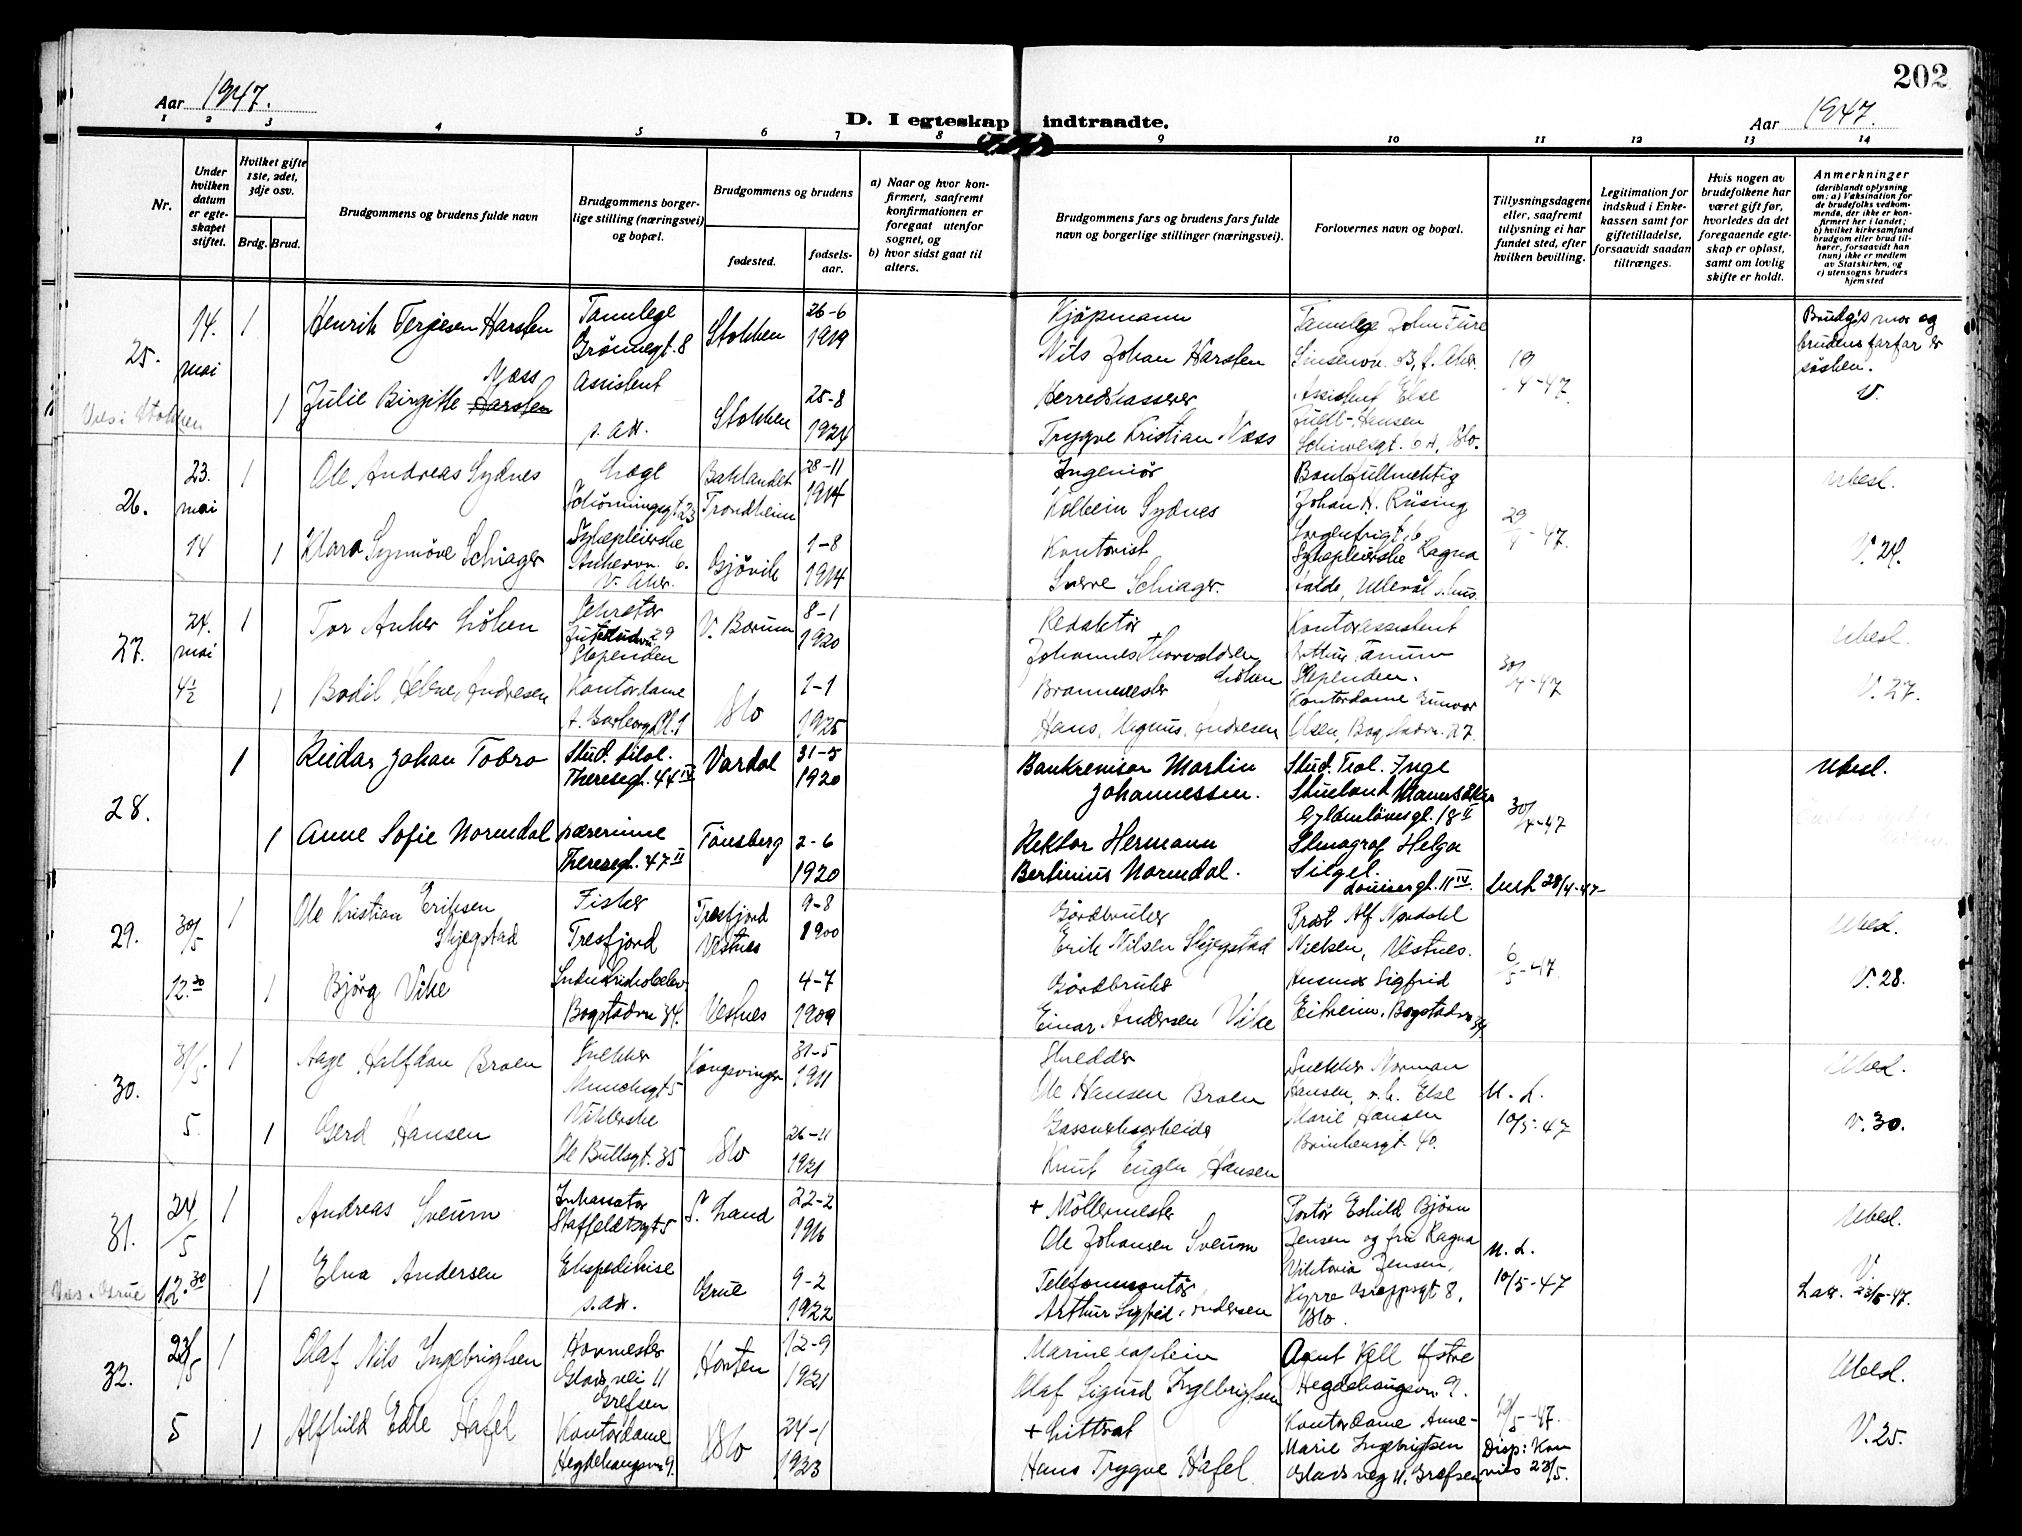 202
Aar 1947.
D. I egteskap indtraadte.
Aar 1947.
1 2 3 4 5 6 7 8 9 10 11 12 13 14
Nr.
Under hvilken datum er egteskapet stiftet.
Hvilket gifte 1ste, 2det, 3dje osv.
Brdg. Brud.
Brudgommens og brudens fulde navn
Brudgommens borgerlige stilling (næringsvei) og bopæl.
Brudgommens og brudens
fødested.
fødselsaar.
a) Naar og hvor konfirmert, saafremt konfirmationen er foregaat utenfor sognet, og
b) hvor sidst gaat til alters.
Brudgommens fars og brudens fars fulde navn og borgerlige stillinger (næringsvei).
Forlovernes navn og bopæl.
Tillysningsdagene eller, saafremt tillysning ei har fundet sted, efter hvilken bevilling.
Legitimation for indskud i Enkekassen samt for giftetilladelse, forsaavidt saadan tiltrænges.
Hvis nogen av brudefolkene har været gift før, hvorledes da det foregaaende egteskap er opløst, samt om lovlig skifte er holdt.
Anmerkninger
(deriblandt oplysning om: a) Vaksination for de brudefolks vedkommende, der ikke er konfirmert her i landet; b) hvilket kirkesamfund brudgom eller brud tilhører, forsaavidt han (hun) ikke er medlem av Statskirken, og c) utensogns bruders hjemsted
25. 14. mai 1
Henrik Terjesen Harsten
Tannlege
Grønnegt. 8
Stokken
26-6
1919
Kjøpmann
Nils Johan Harsten
Tannlege John Fure
19/4-47.
Brudg's mor og brudens farfar er søsken.
V.
Viet i Stokken
1
Julie Birgitte Harsten Næss
Assistent
s. adr.
Stokken
25-8
1924
Herredskasserer
Trygve Kristian Næss
Assistent Else
26. 23. mai 14
1
Ole Andreas Sydnes
Læge
Schønningsgt. 23
Baklandet
Trondheim
28-11
1914
Ingeniør
Kolbein Sydnes
Bankfullmektig
Johan H. Rüsing
Sorgenfrigt. 6
29/4-47.
Ubesl.
V. 24.
1
Klara Synnöve Schiager
Sykepleierske
Ankervn. 6.
V. Aker.
Gjøvik
1-8
1914
Kontorist
Sverre Schiager.
Sykepleierske Ragna
27. 24. mai 4½
1
Tor Anker Löken
Sekretær
Slependen
V. Bærum
8-1
1920
Redaktör
Johannes Thorvaldsen Löken
Kontorassistent
Slependen.
30/4-47
Ubesl.
V. 27.
1
Bodil Helene Andresen
Kontordame
Oslo
1-1
1925
Brannmester
Hans Magnus Andresen
Kontordame Gunvor
Olsen, Bogstadvn. 27.
28.
1
Reidar Johan Tobro
Stud. filol.
Theresegt. 44 IV
Vardal
31-5
1920
Bankrevisor Martin
Johannessen.
Stud. Teol. Inge
Gyldenløvesgt. 18 II
30/4-47
Ubesl.
1
Anne Sofie Normdal
Lærerinne
Theresegt. 47 II
Tønsberg
2-6
1920
Rektor Hermann
Bertinius Normdal.
Stenograf Helga
Louisesgt. 11 IV.
Lyst 28/4-47
29. 30/5 12.30
1
Ole Kristian Eriksen
Skjegstad
Fisker
Tresfjord
Tresfjord
Vestnes
9-8
1900
Gårdbruker
Erik Nilsen Skjegstad
Prost Alf Nordahl
Nielsen, Vestnes.
6/5-47.
Ubesl.
V. 28.
1
Bjørg Vike
Bogstadvn 34.
Vestnes
4-7
1909
Gårdbruker
Einar Andersen Vike
Sigfrid
Eitreim, Bogstadvn 34
30. 31/5 5.
1
Aage Halfdan Braen
Snekker
Munchsgt 5
Kongsvinger
31-5
1911
Skredder
Ole Hansen Braen
Snekker Norman
Hansen, o.h. Else
Marie Hansen
Brinkensgt. 40.
U. L.
10/5-47
Ubesl.
V. 30.
1
Gerd Hansen
Ole Bullsgt. 35
Oslo
26-11
1921
Gassverksarbeider
Knut Eugen Hansen
31. 24/5 12.30
1
Andreas Sveum
Inkassator
Staffeldtsgt 5
S. Land
22-2
1916
+ Möllermester
Ole Johansen Sveum
Portör Eskild Björn
Jensen og fru Ragna
Viktoria Jensen,
Kyrre Greppsgt 8,
Oslo.
U. L.
10/5-47
Ubesl.
V.
23/5-47.
Vies i Grue
1
Elna Andersen
Ekspeditrise
s. adr.
Grue
9-2
1922
Telefonmontör
Arthur Sigfrid Andersen
32. 23/5 5
1
Olaf Nils Ingebrigtsen
Hovmester
Glads vei 11
Grefsen
Horten
12-9
1921
Marinekaptein
Olaf Sigurd Ingebrigtsen
Agent Kjell Østre
Hegdehaugsvn 9.
10/5-47.
Ubesl.
V. 25.
1
Alfhild Edle Hafel
Kontordame
Hegdehaugsvn 9.
Oslo
24-1
1923
+ Littrat
Hans Trygve Hafel
Kontordame Anne-
Marie Ingebrigtsen
Glads veg 11, Grefsen
Disp: Kon
23/5.